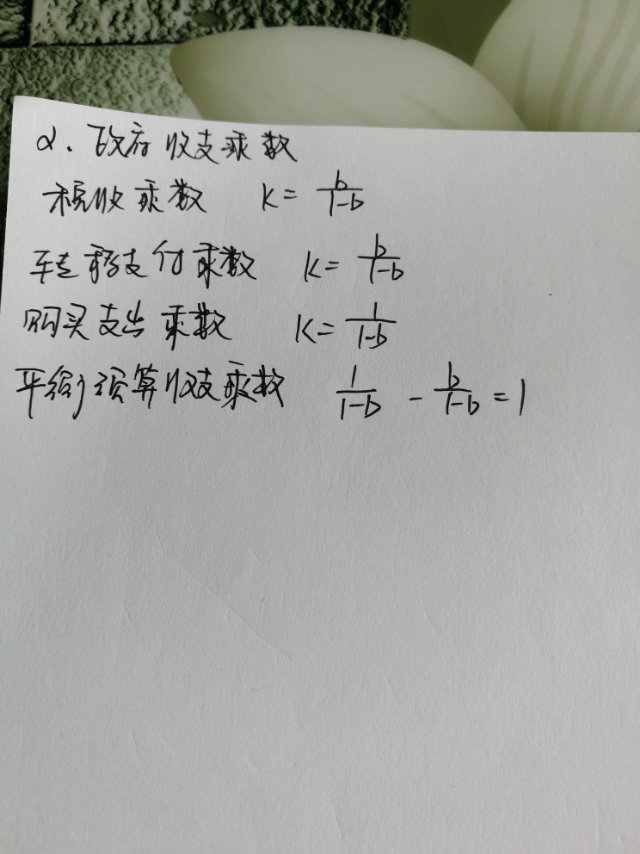 2、政府收支乘数
税收乘数 K= b/1-b
转移支付乘数 K= b/1-b
购买支出乘数 K= 1/1-b
平衡预算收支乘数 1/1-b - b/1-b =1